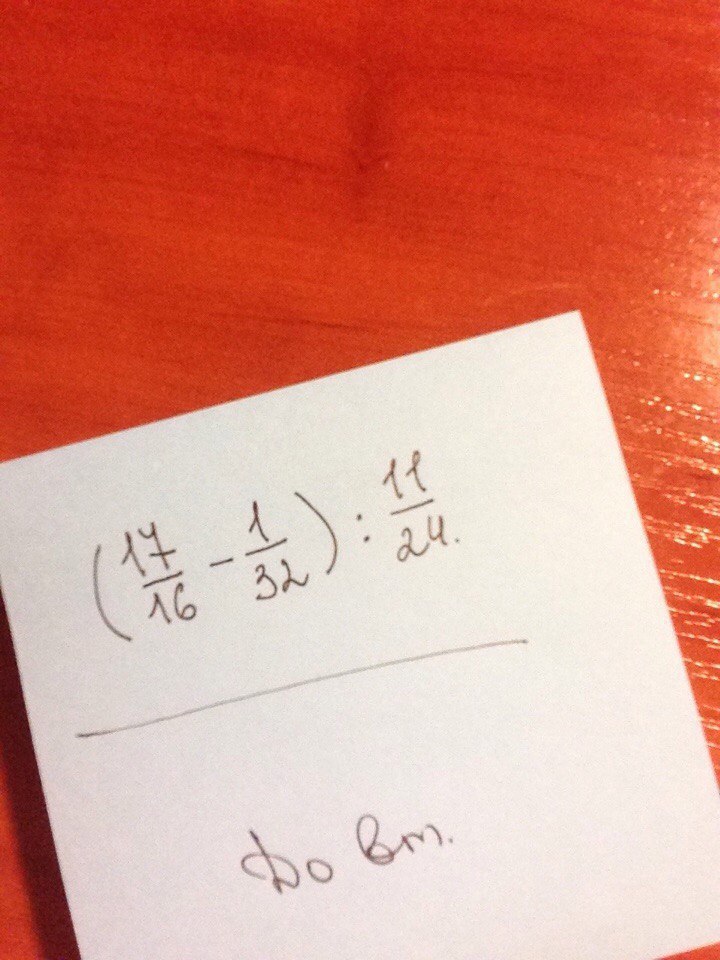 (17/16 - 1/32) : 11/24.
До вт.